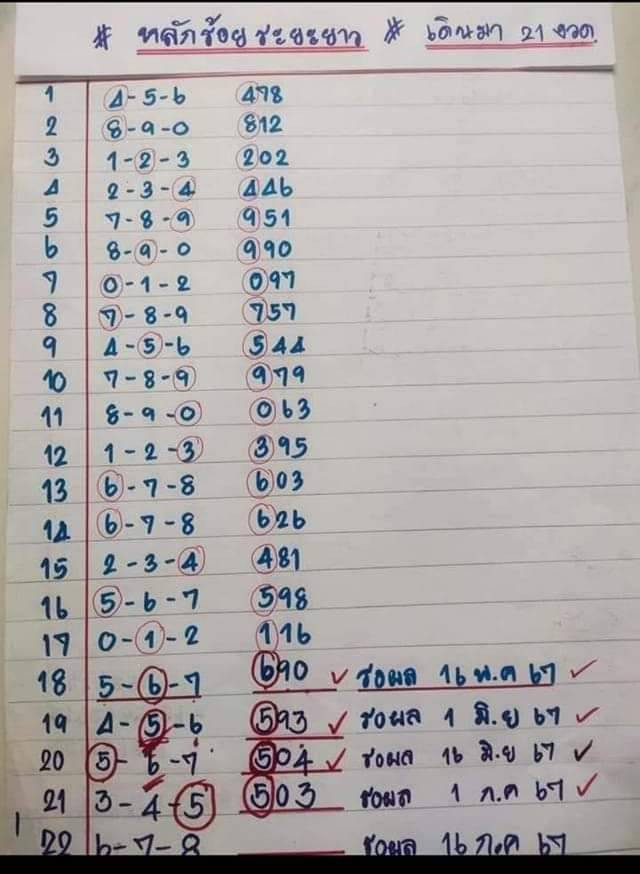 # หลักร้อย ระยะยาว # เดินมา 21 งวด
1 4-5-6 478
2 8-9-0 812
3 1-2-3 202
4 2-3-4 446
5 7-8-9 951
6 8-9-0 990
7 0-1-2 097
8 7-8-9 757
9 4-5-6 544
10 7-8-9 979
11 8-9-0 063
12 1-2-3 395
13 6-7-8 603
14 6-7-8 626
15 2-3-4 481
16 5-6-7 598
17 0-1-2 116
18 5-6-7 690 ✓ รอผล 16 พ.ค 67 ✓
19 4-5-6 593 ✓ รอผล 1 มิ.ย 67 ✓
20 5-6-7 504 ✓ รอผล 16 มิ.ย 67 ✓
21 3-4-5 503 รอผล 1 ก.ค 67 ✓
22 6-7-8 รอผล 16 ก.ค 67